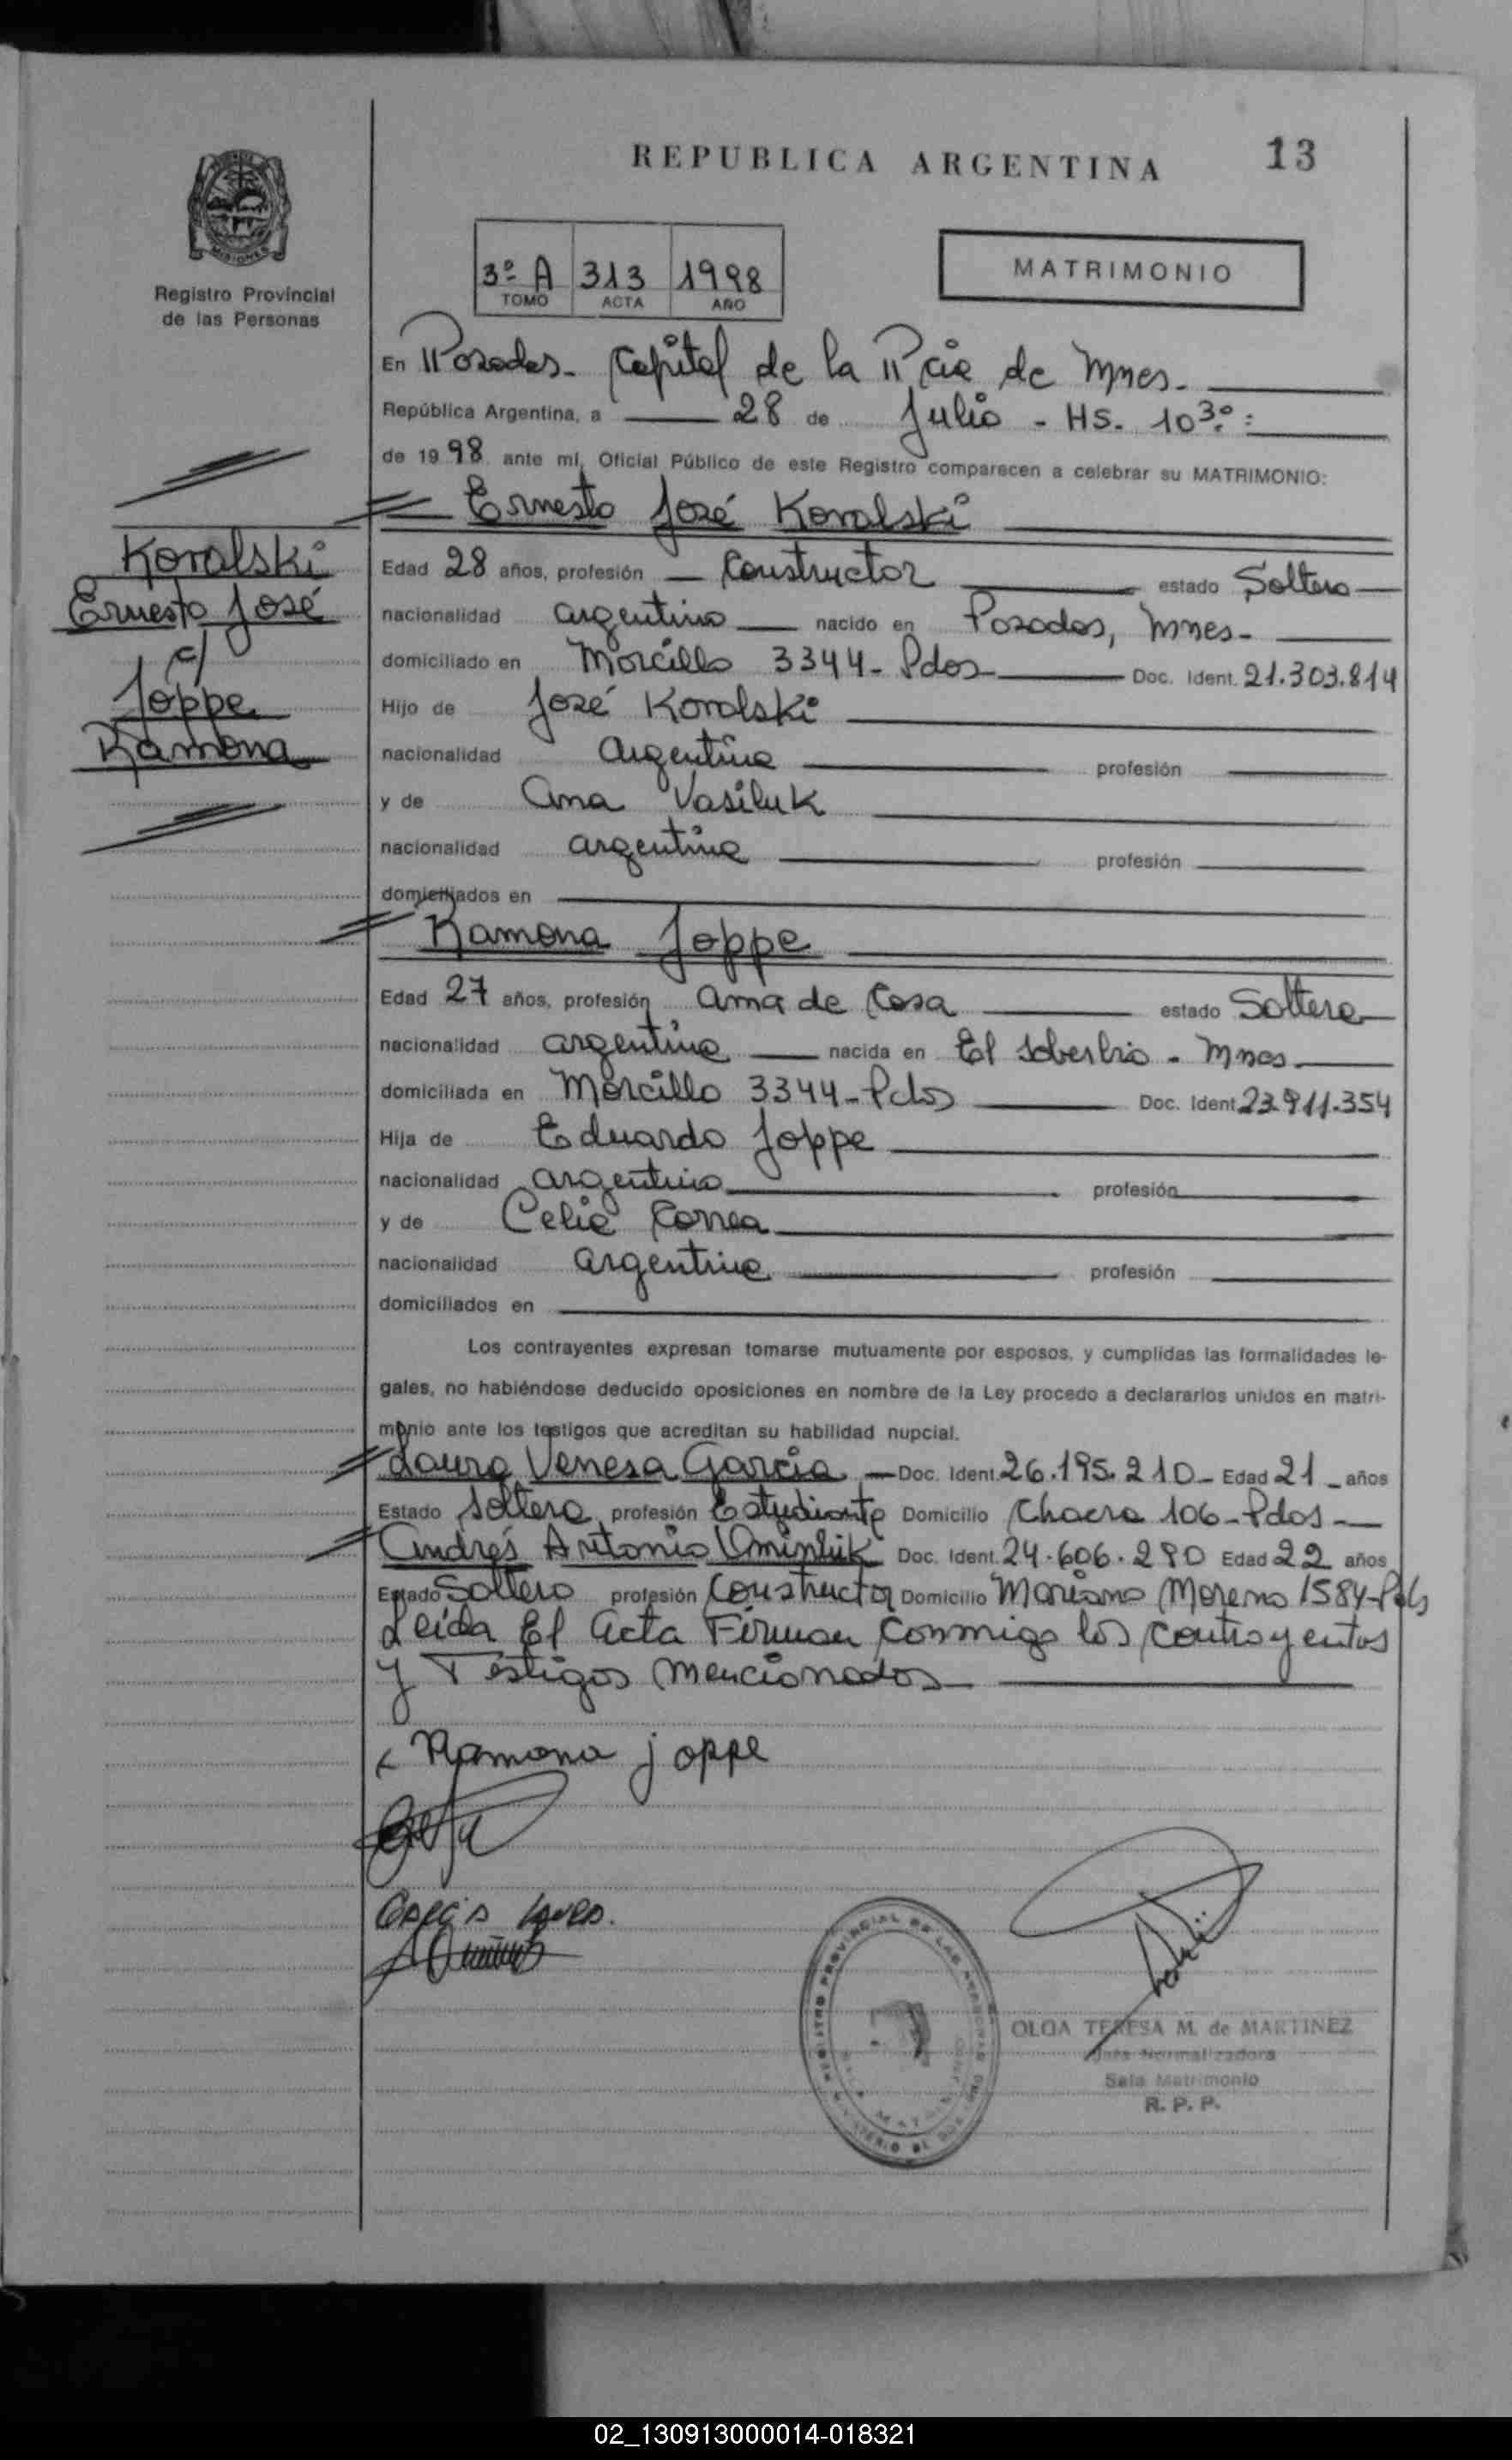 REPUBLICA ARGENTINA
13
MISIONES
Registro Provincial
de las Personas
3º A 313 1998
TOMO ACTA AÑO
MATRIMONIO
En Posadas - Capital de la Pcia de Mnes.
República Argentina, a 28 de Julio - HS. 10³⁰:
de 1998 ante mí, Oficial Público de este Registro comparecen a celebrar su MATRIMONIO:
Ernesto José Kovalski
Kovalski
Ernesto José
c/
Joppe
Ramona
Edad 28 años, profesión Constructor estado Soltero
nacionalidad argentino nacido en Posadas, Mnes-
domiciliado en Morcillo 3344- Pdas Doc. Ident. 21.303.814
Hijo de José Kovalski
nacionalidad Argentina profesión
y de Ana Vasiluk
nacionalidad argentina profesión
domiciliados en
Ramona Joppe
Edad 27 años, profesión Ama de Casa estado Soltera
nacionalidad argentina nacida en El Soberbio - Mnes
domiciliada en Morcillo 3344-Pdas Doc. Ident 23.911.354
Hija de Eduardo Joppe
nacionalidad argentino profesión
y de Celia Correa
nacionalidad argentina profesión
domiciliados en
Los contrayentes expresan tomarse mutuamente por esposos, y cumplidas las formalidades le-
gales, no habiéndose deducido oposiciones en nombre de la Ley procedo a declararlos unidos en matri-
monio ante los testigos que acreditan su habilidad nupcial.
Laura Venesa García Doc. Ident. 26.195.210- Edad 21 años
Estado Soltera profesión Estudiante Domicilio Chacra 106-Pdas
Andrés Antonio Doc. Ident. 24.606.280 Edad 22 años
Estado Soltero profesión Constructor Domicilio Mariano Moreno 1584-Pdas
Leída El Acta Firman Conmigo los Contrayentes
y Testigos Mencionados
Ramona joppe
OLGA TERESA M. de MARTINEZ
Sala Matrimonio
R. P. P.
02_130913000014-018321